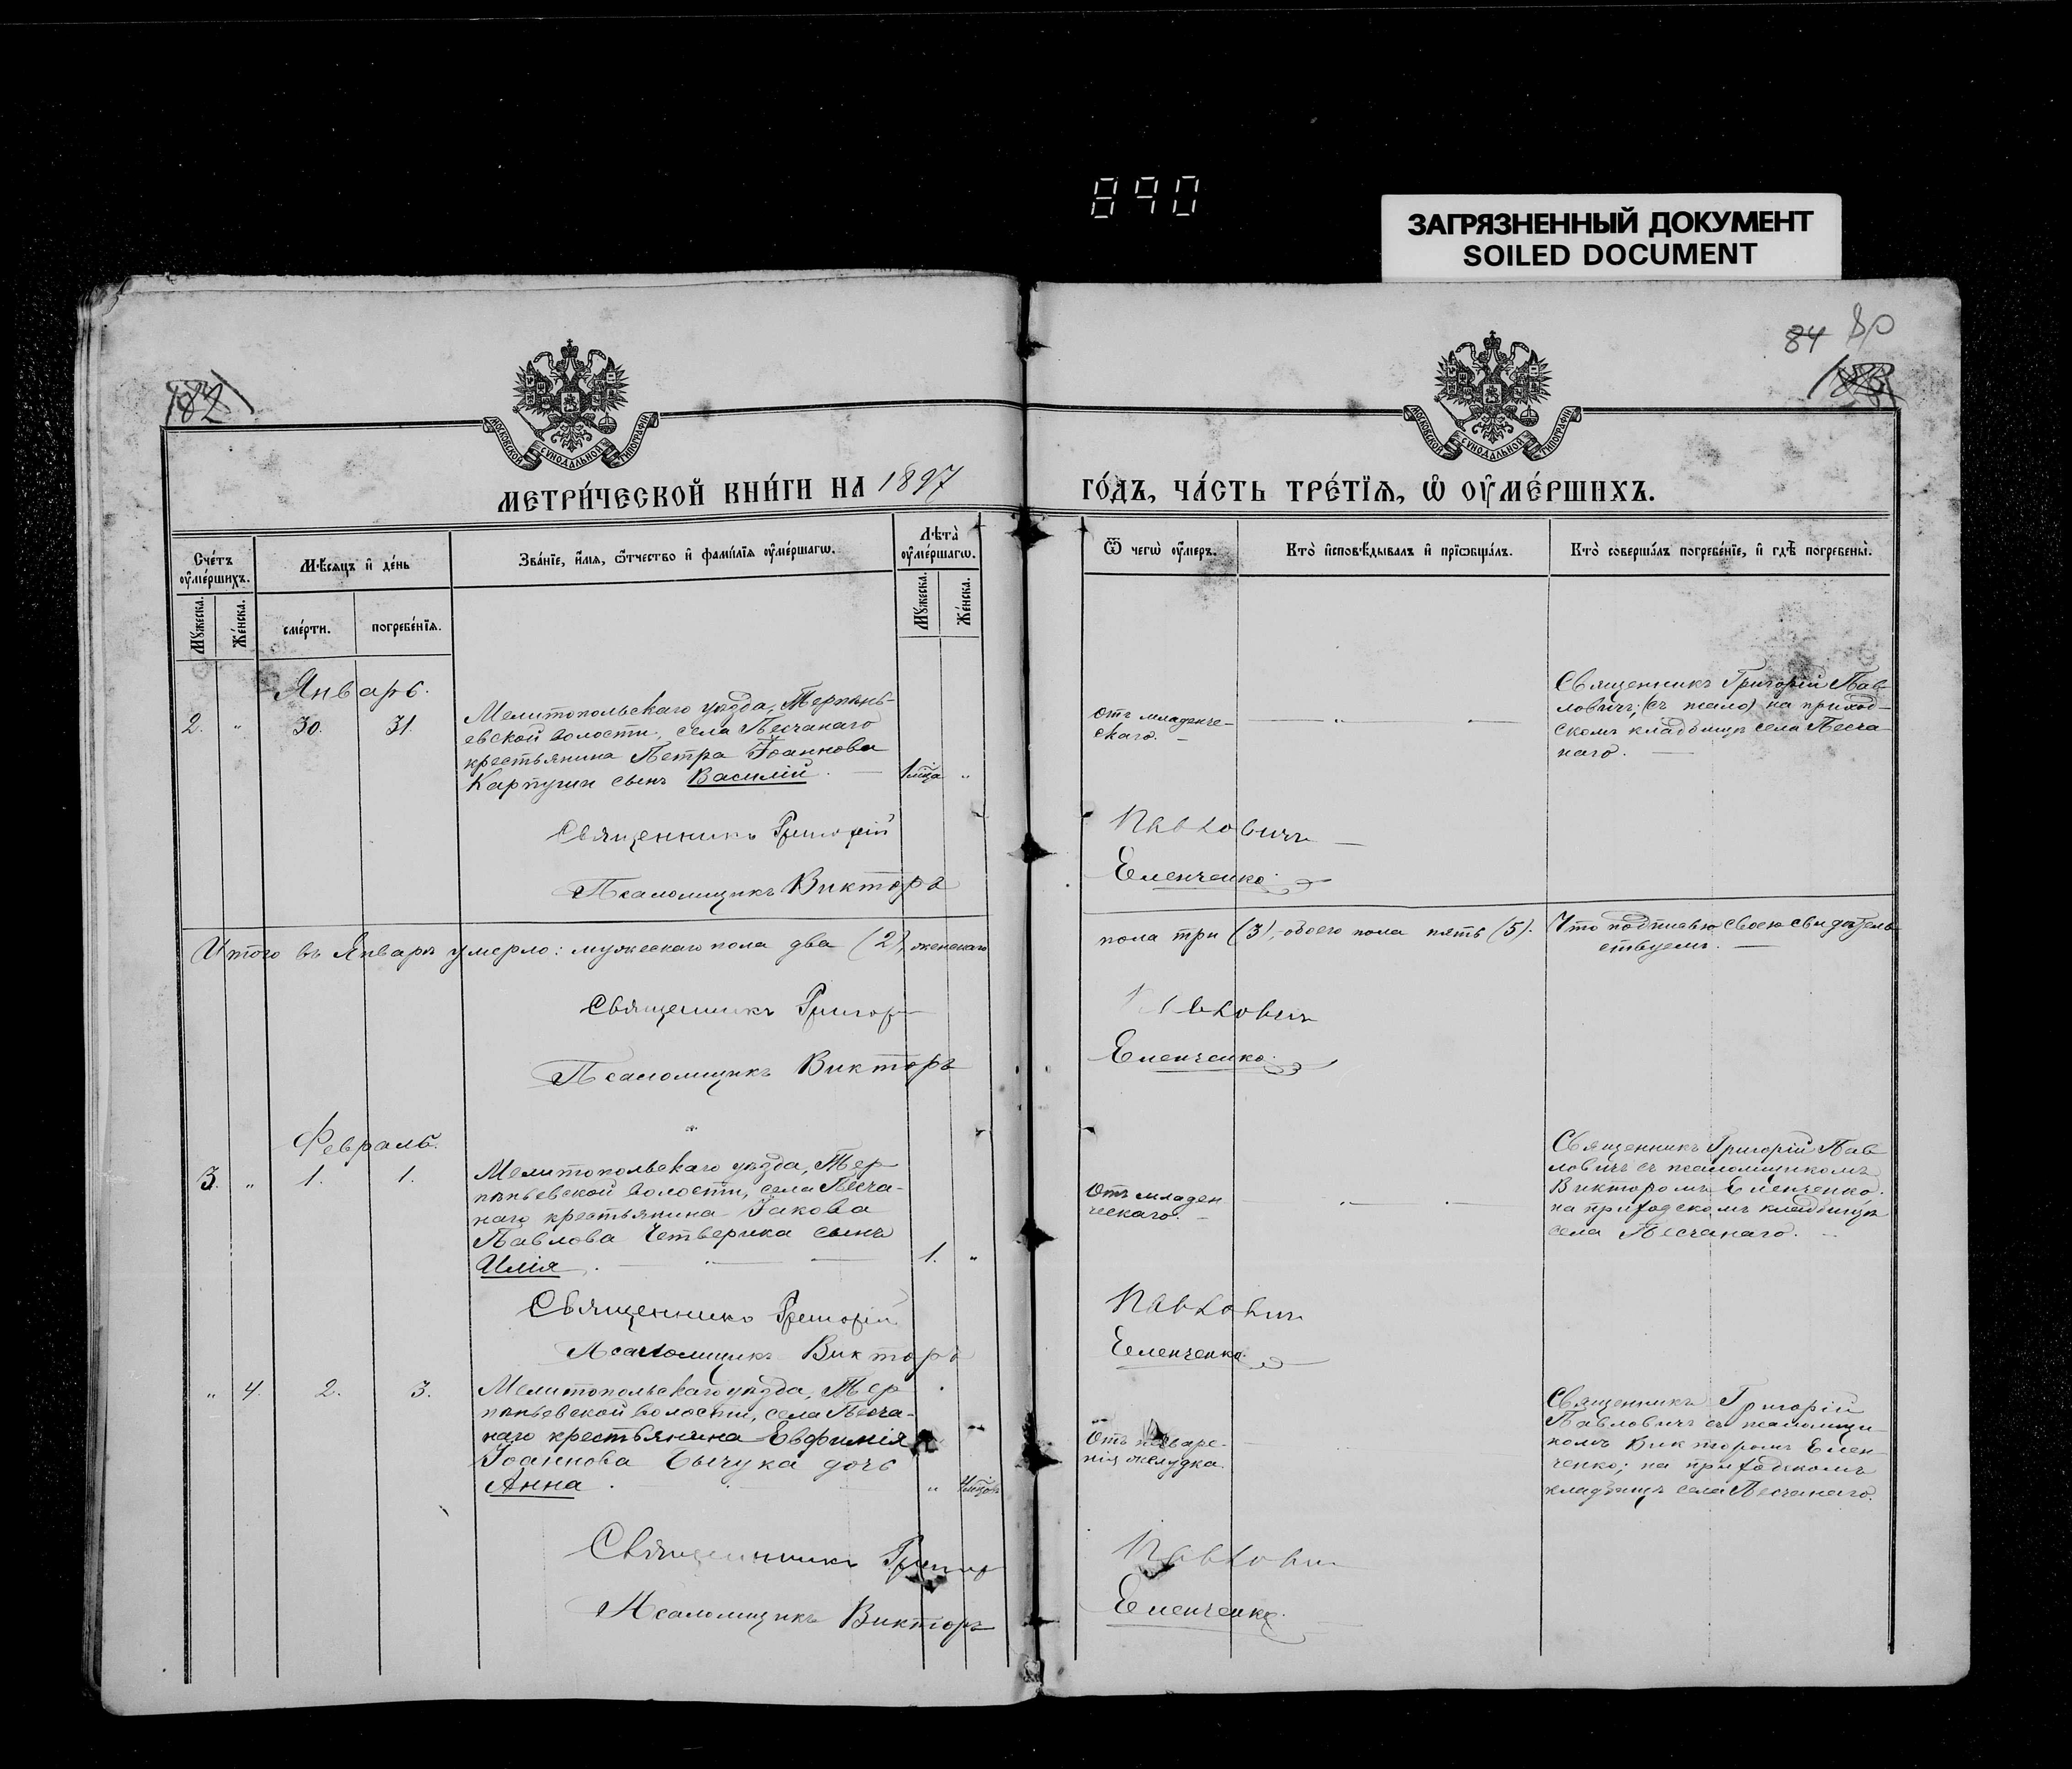 890
ЗАГРЯЗНЕННЫЙ ДОКУМЕНТ
SOILED DOCUMENT
84 80
182
МОСКОВСКОЙ СУНОДАЛЬНОЙ ТИПОГРАФІИ
МОСКОВСКОЙ СУНОДАЛЬНОЙ ТИПОГРАФІИ
МЕТРИ́ЧЕСКОЙ КНИ́ГИ НА 1897 ГО́ДЪ, ЧА́СТЬ ТРЕ́ТЇѦ, Ѡ҆ ОУ҆МЕ́РШИХЪ.
Сче́тъ оу҆ме́ршихъ.
Мꙋ́жеска.
Же́нска.
Мѣ́сѧцъ и҆ де́нь
сме́рти.
погребе́нїѧ.
Зва́нїе, и҆́мѧ, ѻ҆́тчество и҆ фамі́лїѧ оу҆ме́ршагѡ.
Лѣ́та оу҆ме́ршагѡ.
Мꙋ́жеска.
Же́нска.
Ѿ чегѡ̀ оу҆́меръ.
Кто̀ и҆сповѣ́дывалъ и҆ прїѡбща́лъ.
Кто̀ соверша́лъ погребе́нїе, и҆ гдѣ̀ погребены̀.
Январь.
2. „ 30. 31.
Мелитопольскаго уѣзда, Терпѣнь-
евской волости, села Песчанаго
крестьянина Петра Іоаннова
Карпугин сынъ Василій. 1 мѣс „
Отъ младенче-
скаго.
Священникъ Григорій Пав-
ловичъ; (съ псало) на приход-
скомъ кладбищѣ села Песча-
наго.
Священникъ Григорій Павловичъ
Псаломщикъ Викторъ Еленченко
Итого въ Январѣ умерло: мужескаго пола два (2), женскаго пола три (3), обоего пола пять (5). Что подписью своею свидѣтель-
ствуемъ.
Священникъ Григорій Павловичъ
Псаломщикъ Викторъ Еленченко
Февраль.
3. „ 1. 1.
Мелитопольскаго уѣзда, Тер-
пѣньевской волости, села Песча-
наго крестьянина Іакова
Павлова Четверика сынъ
Илія. 1. „
Отъ младен
ческаго.
Священникъ Григорій Пав
ловичъ съ псаломщикомъ
Викторомъ Еленченко,
на приходскомъ кладбищѣ
села Песчанаго.
Священникъ Григорій Павловичъ
Псаломщикъ Викторъ Еленченко
„ 4. 2. 3.
Мелитопольскаго уѣзда, Тер
пѣньевской волости, села Песча-
наго крестьянина Евфимія
Іоаннова Бычука дочь
Анна
Отъ несваре-
нія желудка.
Священникъ Григорій
Павловичъ съ псаломщи-
комъ Викторомъ Елен-
ченко; на приходскомъ
кладбищѣ села Песчанаго.
Священникъ Григор Павлович
Псаломщикъ Викторъ Еленченко